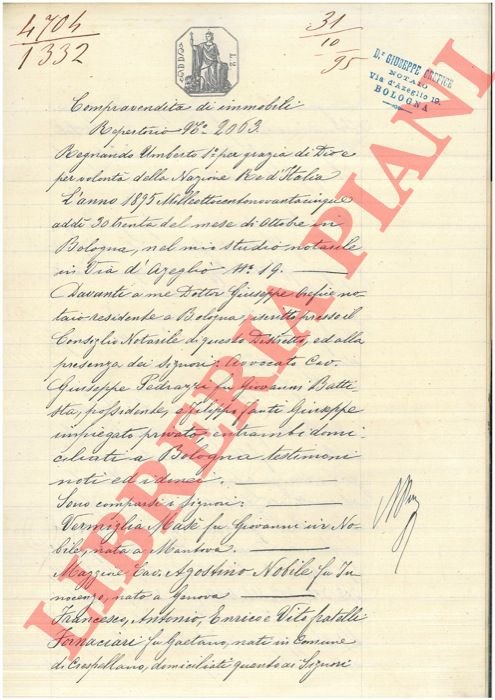 4704
1332
31
10
95
Dr GIUSEPPE OREFICE
NOTAIO
Via d'Azeglio 19.
BOLOGNA
Compravendita di immobili
Repertorio No. 2063.
Regnando Umberto 1º per grazia di Dio e
per volontà della Nazione Re d'Italia
L'anno 1895 Milleottocentonovantacinque
addì 30 trenta del mese di Ottobre in
Bologna, nel mio studio notarile
in Via d'Azeglio No. 19.
Davanti a me Dottor Giuseppe Orefice no-
taio residente a Bologna, iscritto presso il
Consiglio Notarile di questo Distretto, ed alla
presenza dei Signori: Avvocato Cav.
Giuseppe Pedrazzi fu Giovanni Batti-
sta, possidente, e Filippo Giuseppe
impiegato privato, entrambi domi-
ciliati a Bologna testimoni
noti ed idonei.
Sono comparsi i Signori:
Vermiglia fu Giovanni No-
bile, nata a Mantova.
Cav. Agostino Nobile fu In-
nocenzo, nato a Genova
Francesco, Antonio, Enrico e Vito fratelli
Fornaciari fu Gaetano, nati in Comune
di Crespellano, domiciliati quanto ai Signori
LIBRERIA PIANI